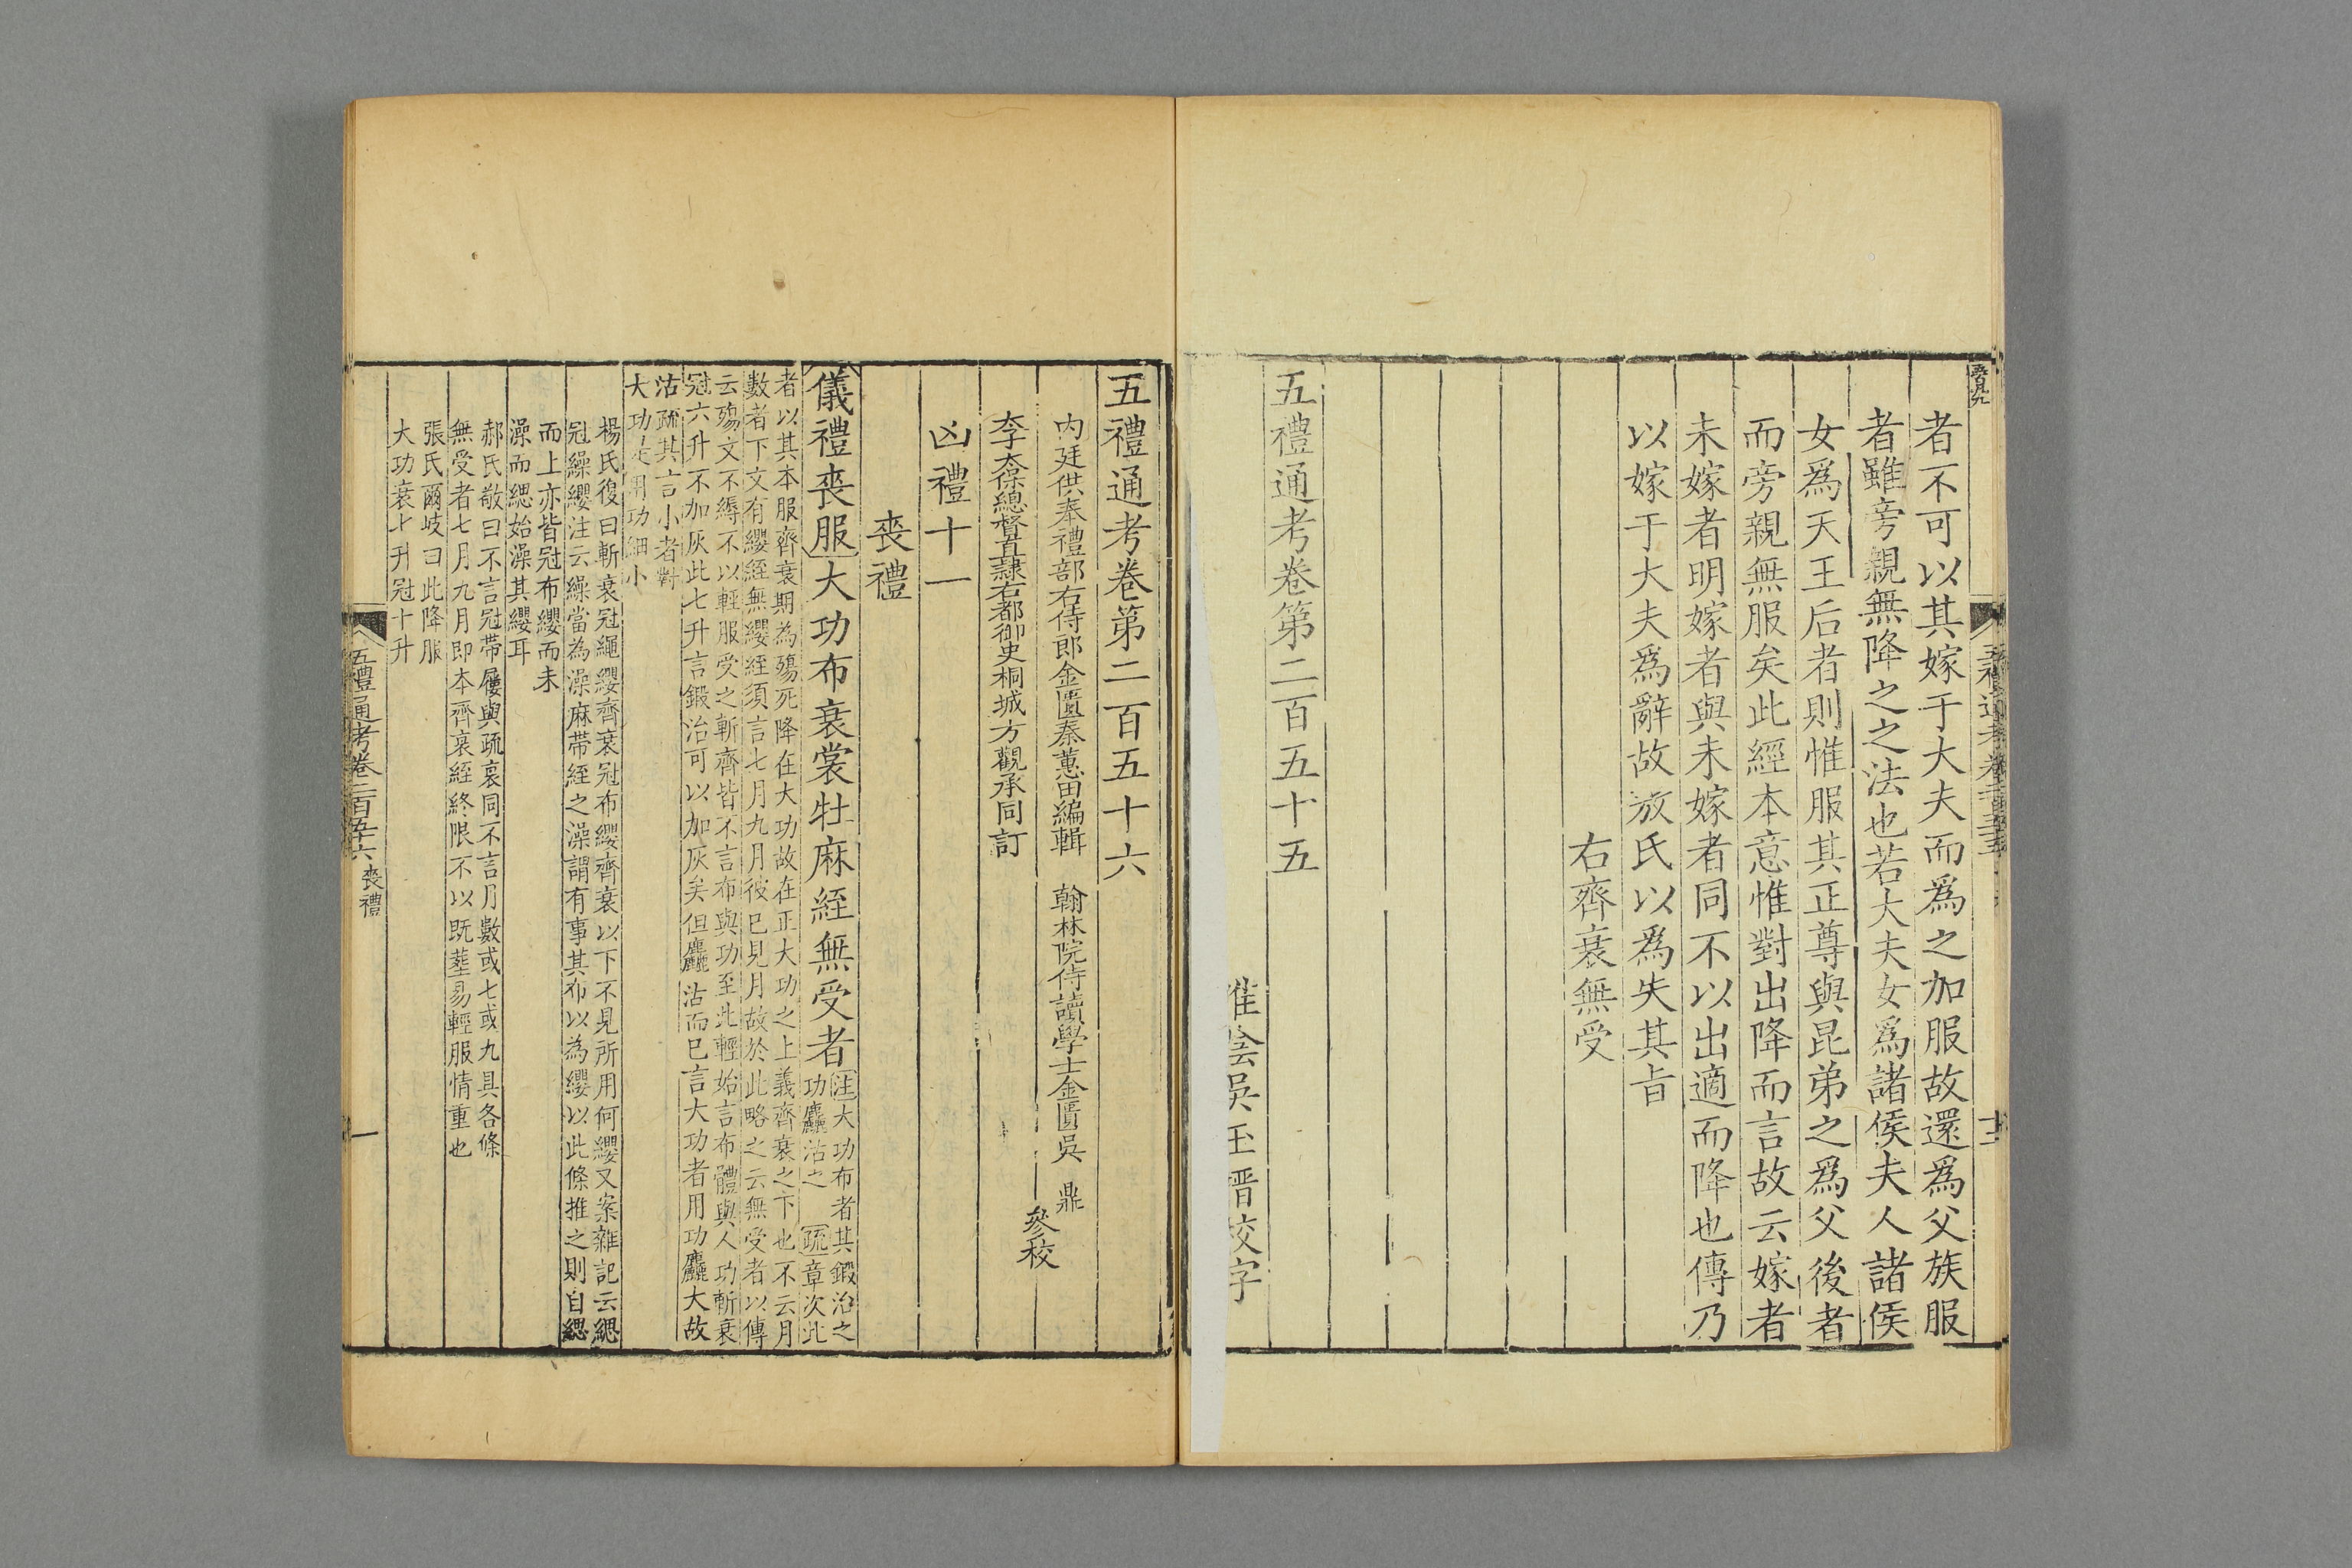 者不可以其嫁于大夫而爲之加服故還爲父族服
者雖旁親無降之之法也若大夫女爲諸侯夫人諸侯
女爲天王后者則惟服其正尊與昆弟之爲父後者
而旁親無服矣此經本意惟對出降而言故云嫁者
未嫁者明嫁者與未嫁者同不以出適而降也傳乃
以嫁于大夫爲辭故敖氏以爲失其㫖
右齊衰無受
五禮通考卷第二百五十五
淮陰吳玉搢校字
五禮通考卷第二百五十六
内廷供奉禮部右侍郎金匱秦蕙田編輯 翰林院侍讀學士金匱吳 鼎
李太保總督直隸右都御史桐城方觀承同訂 參校
凶禮十一
喪禮
儀禮喪服大功布衰裳牡麻絰無受者
注大功布者其鍛治之
功麤沽之 疏章次此
者以其本服齊衰期為殤死降在大功故在正大功之上義齊衰之下也不云月
數者下文有纓絰無纓絰須言七月九月彼已見月故於此略之云無受者以傳
云殤文不縟不以輕服受之斬齊皆不言布與功至此輕始言布體與人功斬衰
冠六升不加灰此七升言鍛治可以加灰矣但麤沽而已言大功者用功麤大故
沽疏其言小者對
大功是用功細小
楊氏復曰斬衰冠繩纓齊衰冠布纓齊衰以下不見所用何纓又案雜記云緦
冠繰纓注云繰當為澡麻帶絰之澡謂有事其布以為纓以此條推之則自緦
而上亦皆冠布纓而未
澡而緦始澡其纓耳
郝氏敬曰不言冠帶屨與疏衰同不言月數或七或九具各條
無受者七月九月即本齊衰絰終限不以既葬易輕服情重也
張氏爾岐曰此降服
大功衰七升冠十升
五禮通考卷二百五十六 喪禮
一